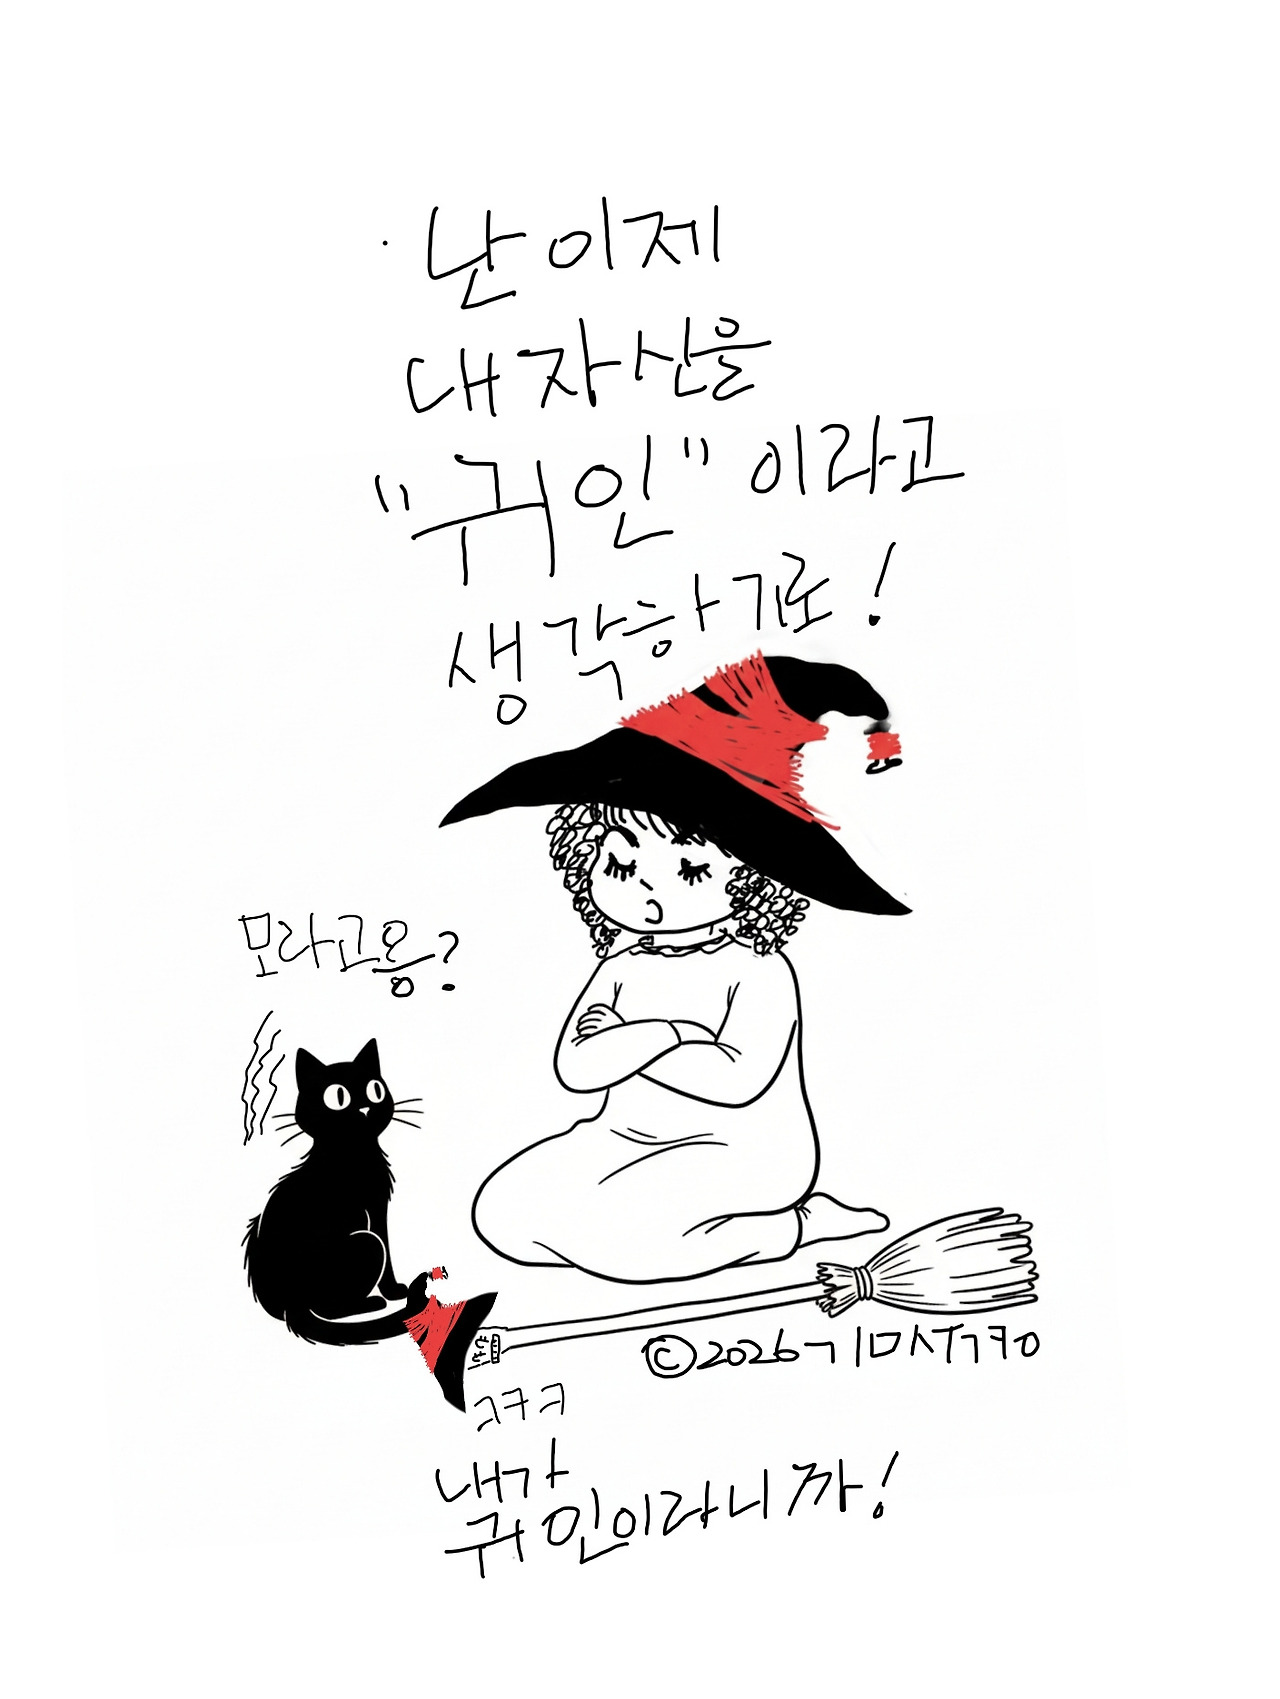 난 이제
내 자신을
"귀인"이라고
생각하기로!
모라고용?
©2026ㄱㅣㅁㅅㅓㄱㅋㅇ
ㅋㅋㅋ
내가
귀인이라니까!